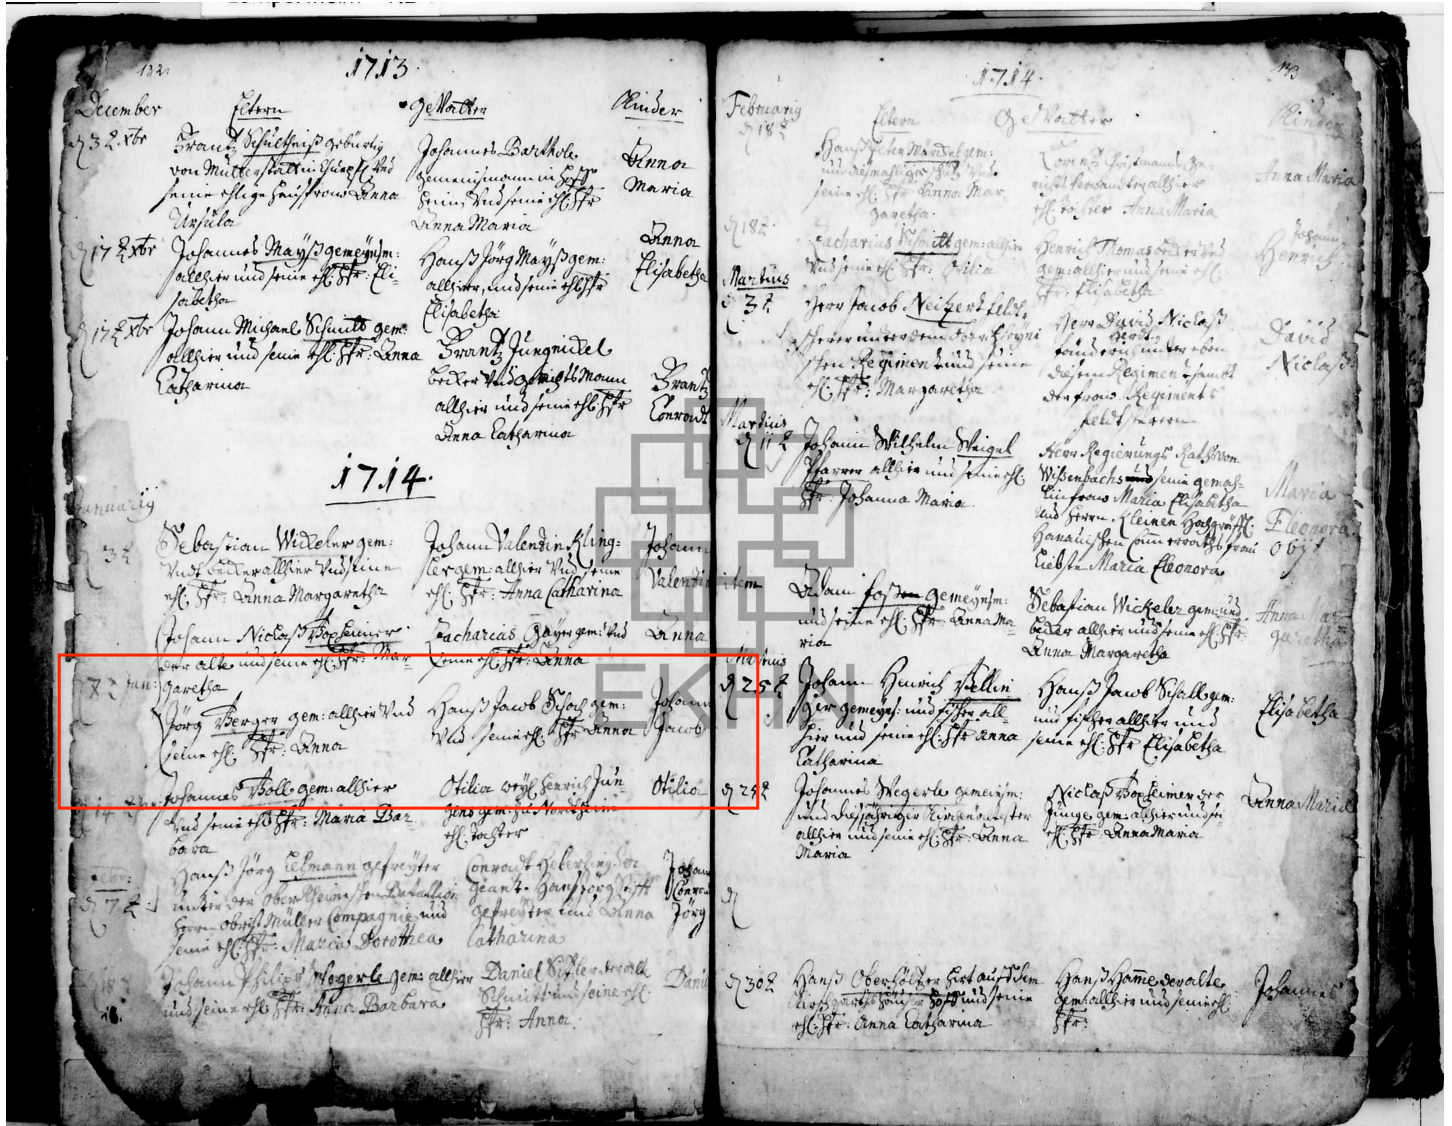 132.
1713.
December
Eltern
geVatter
Kinder
d 3 t xbr
Frantz Schultheiß gebürtig
von Mutterstatt in Und
seine ehlige haußfraw Anna
Ursula
Johannes Barthole
gemeinsmann in
heim, Und seine ehl: hfr
Anna Maria
Anna
Maria
d 17 t xbr
Johannes Mayß gemeynsm:
allhier und seine ehl. hfr: Eli-
sabetha
Hanß Jörg Mayß gem:
allhier, und seine ehl hfr
Elisabetha
Anna
Elisabetha
d 17 t xbr
Johann Michael Schmitt gem:
allhier und seine ehl. hfr: Anna
Catharina
Frantz Jungnickel
becker Und gerichts Mann
allhier und seine ehl. hfr
Anna Catharina
Frantz
Conradt
1714.
Januarij
d 3 t
Sebastian Wickeler gem:
Undt becker allhier Und seine
ehl. hfr: Anna Margaretha
Johann Valendin Kling-
ler gem: allhier Und seine
ehl. hfr: Anna Catharina
Johann
Valendin
Johann Niclaß Bopheimer
der alte und seine ehl. hfr: Mar-
garetha
Zacharias Gayer gem: Und
seine ehl. hfr: Anna
Anna
d 7 t Jan:
Jörg Berger gem: allhier Und
seine ehl. hfr: Anna
Hanß Jacob Schach gem:
Und seine ehl. hfr Anna
Johann
Jacob
d 14 t
Johannes Boll gem: allhier
Und seine ehl hfr: Maria Bar-
bara
Otilia weyl. Henrich Jun-
gens gem: zu Nordheim
ehl. Tochter
Otilia
d 7 t
Hanß Jörg Lehmann gefreyter
unter der Ober Rheinischen Batallion
herrn obrist Müller Compagnie und
seine ehl. hfr: Maria Dorothea
Conradt Heberling Ser
geant. Hanß Jörg
gefreyter und Anna
Catharina
Johann
Conrad
Jörg
d 18 t
Johann Philips Wegerle gem: allhier
und seine ehl. hfr: Anna Barbara
Daniel Sittler der alte
Schmitt und seine ehl.
hfr: Anna.
Daniel
133
1714.
Februarij
Eltern
GeVatter
Kinder
d 18 t
Hanß Peter Mandel gem:
seine ehl. hfr: Anna Mar-
garetha.
Lorentz Christmanns ge-
richts Verwandten allhier
ehl. töchter Anna Maria
Anna Maria
d 18 t
Zacharias Schmitt gem: allhier
Und seine ehl. hfr: Otilia
Henrich Thomas becker Und
gem: allhier und seine ehl.
hfr: Elisabetha
Johann
Henrich
Martius
d 3 t
Herr Jacob Neitzert feldt-
scherer unter dem ober Rheyni
schen Regiment und seine
ehl. hfr: Margaretha
Herr David Niclaß
fändrich unter eben
diesem Regiment sambt
der fraw Regiments
feldtscherern
David
Niclaß
Martius
d 11 t
Johann Wilhelm Weigel
Pfarrer allhier und seine ehl.
hfr: Johanna Maria
Herr Regierungs Raths von
Wißenbachs und seine gemah-
lin fraw Maria Elisabetha
Und Herrn Kleinen Hochgräffl:
Hanauischen Cammerraths fraw
Liebste Maria Eleonora
Maria
Eleonora
obijt
item
Adam gemeynsm:
und seine ehl. hfr: Anna Ma-
ria
Sebastian Wickeler gem: und
becker allhier und seine ehl. hfr:
Anna Margaretha
Anna Mar-
garetha
Martius
d 25 t
Johann Henrich Bellin
ger gemeyns: und fischer all-
hier und seine ehl. hfr anna
Catharina
Hanß Jacob Schall gem:
und fischer allhier und
seine ehl: hfr Elisabetha
Elisabetha
d 25 t
Johannes Wegerle gemeynsm:
und diesjähriger Kirchenältester
allhier und seine ehl. hfr: Anna
Maria
Niclaß Bopheimer der
Junge gem: allhier und sei-
ehl. hfr Anna Maria
Anna Maria
d
d 30 t
Hanß Oberhöltzer hirt auff dem
hoff und seine
ehl. hfr: Anna Catharina
Hanß Hamme der alte
gem: allhier und seine ehl.
hfr:
Johannes
EKHN